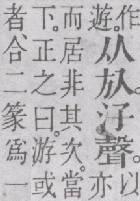 作
遊。
从㫃汓聲。
以
亦
而居非其次。當
下。正之曰。游或
者。合二篆爲一